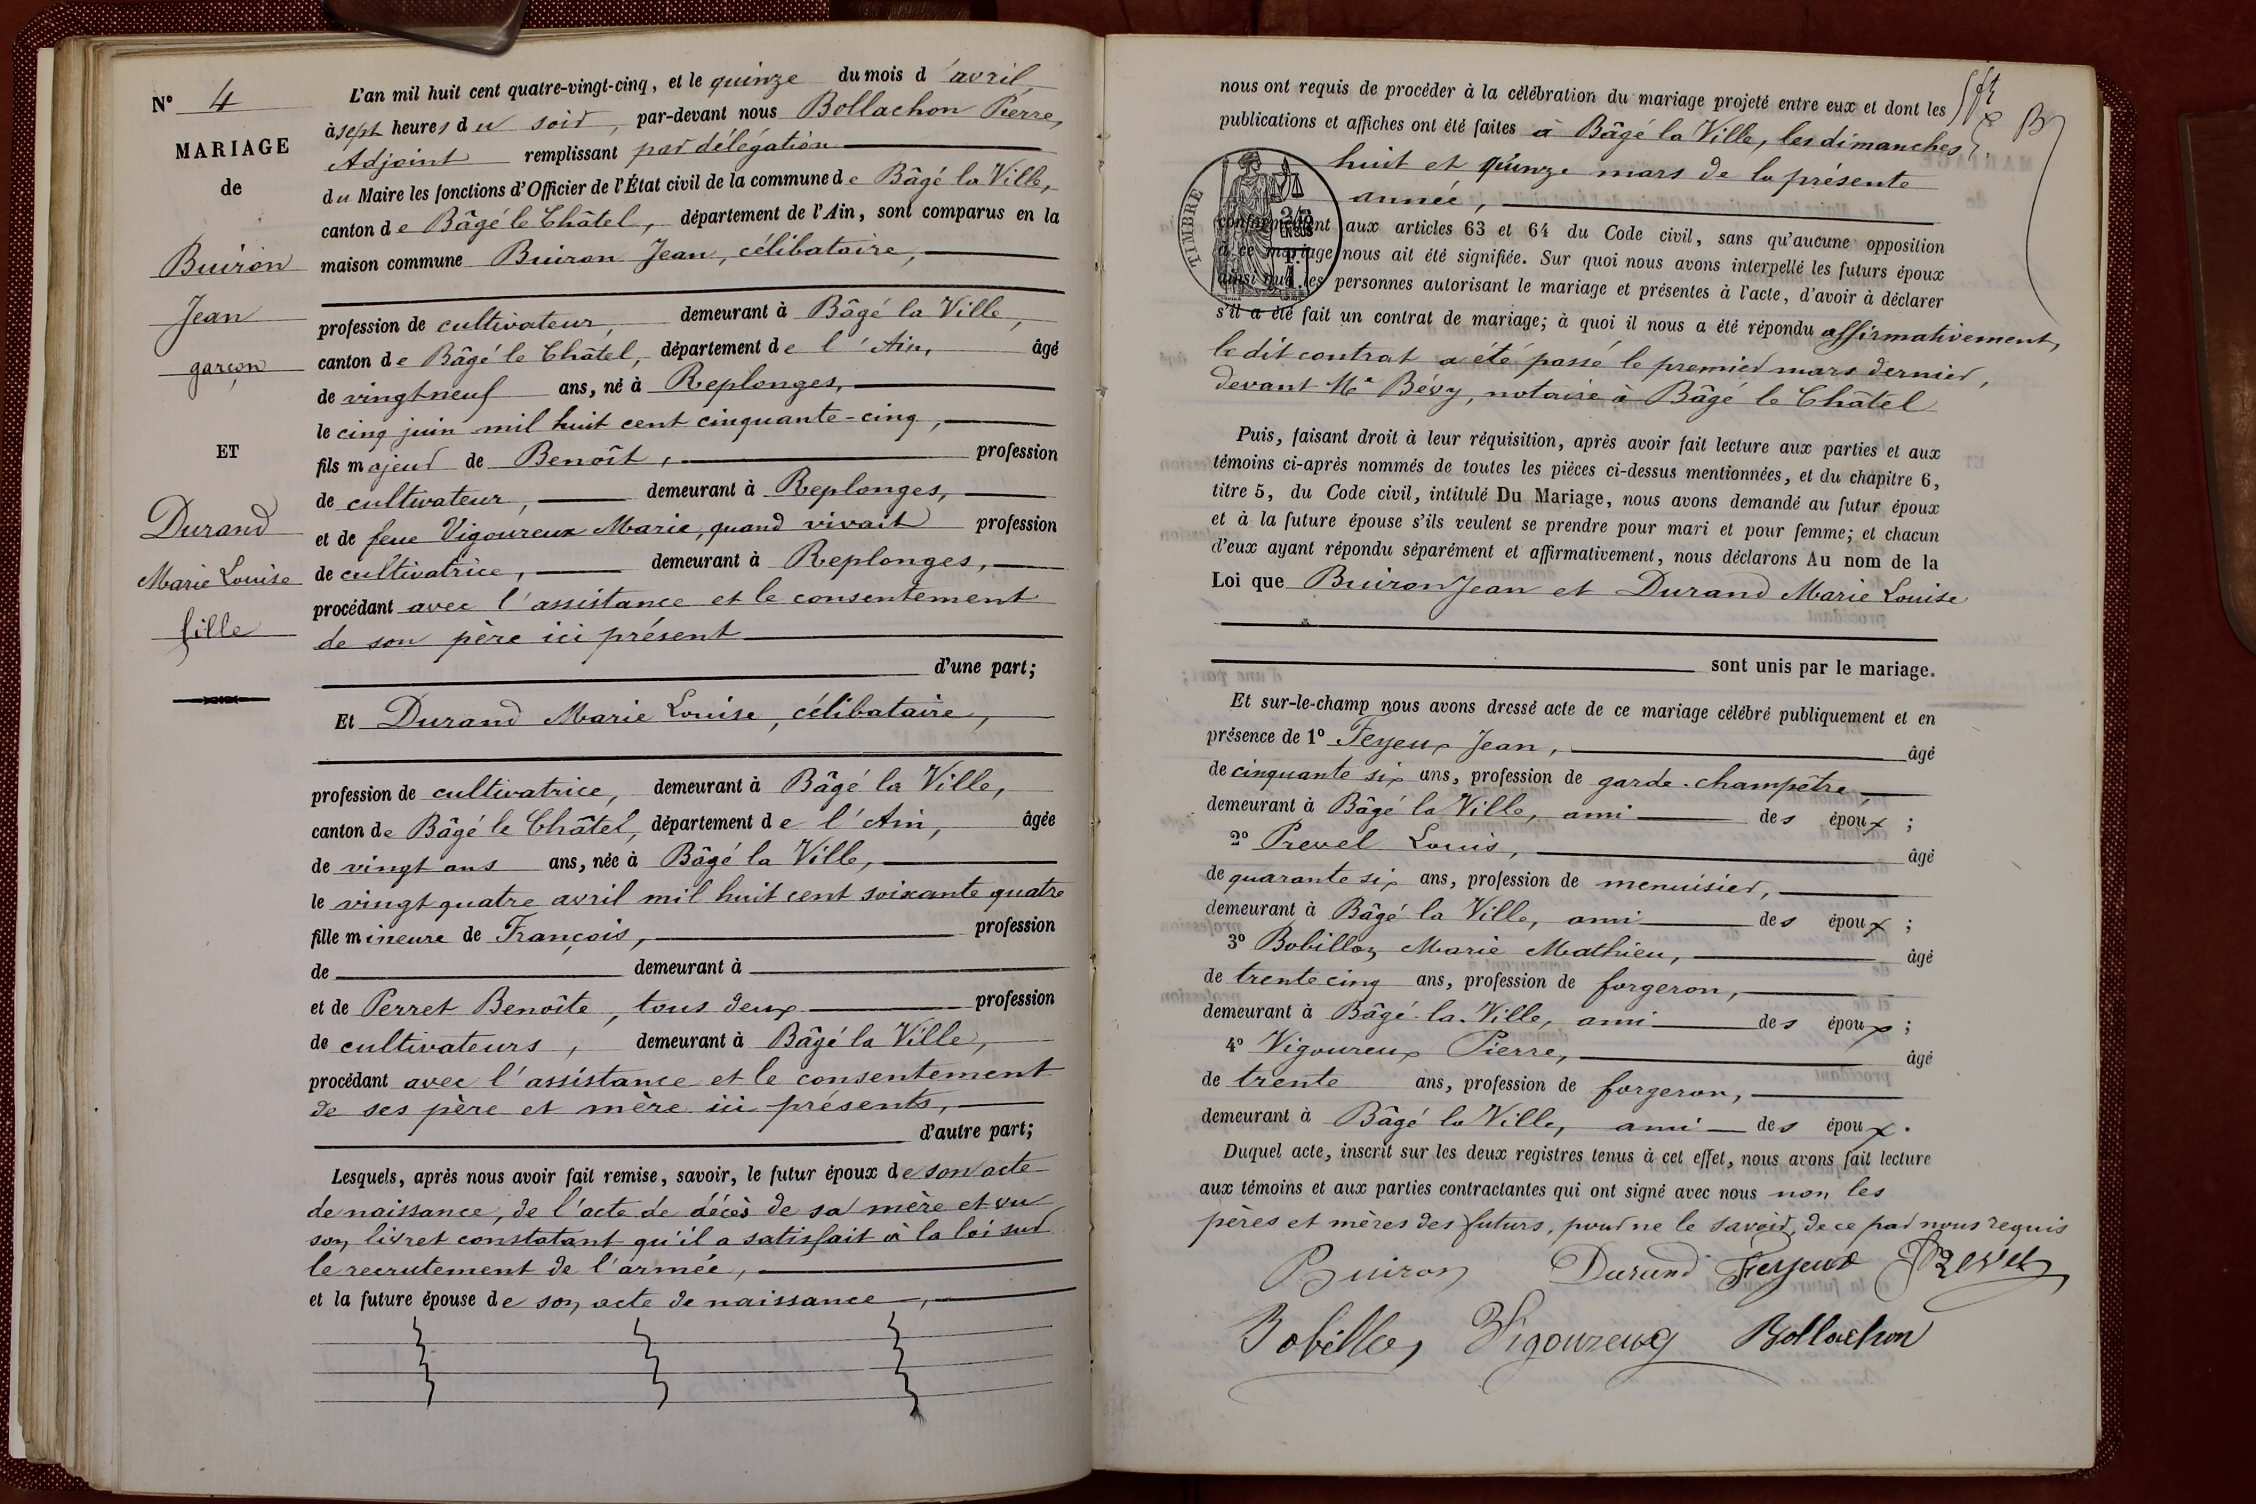 N° 4
MARIAGE
de
Buiron
Jean
garçon
ET
Durand
Marie Louise
fille
L'an mil huit cent quatre-vingt-cinq, et le quinze du mois d'avril
à sept heures du soir, par-devant nous Bollachon Pierre,
Adjoint remplissant par délégation
du Maire les fonctions d'Officier de l'État civil de la commune de Bâgé la Ville,
canton de Bâgé le Châtel, département de l'Ain, sont comparus en la
maison commune Buiron Jean, célibataire,
profession de cultivateur, demeurant à Bâgé la Ville,
canton de Bâgé le Châtel, département de l'Ain, âgé
de vingt neuf ans, né à Replonges,
le cinq juin mil huit cent cinquante-cinq,
fils majeur de Benoît, profession
de cultivateur, demeurant à Replonges,
et de feue Vigoureux Marie, quand vivait profession
de cultivatrice, demeurant à Replonges,
procédant avec l'assistance et le consentement
de son père ici présent
d'une part;
Et Durand Marie Louise, célibataire,
profession de cultivatrice, demeurant à Bâgé la Ville,
canton de Bâgé le Châtel, département de l'Ain, âgée
de vingt ans ans, née à Bâgé la Ville,
le vingt quatre avril mil huit cent soixante quatre
fille mineure de François, profession
de demeurant à
et de Perret Benoîte, tous deux profession
de cultivateurs, demeurant à Bâgé la Ville,
procédant avec l'assistance et le consentement
de ses père et mère ici présents,
d'autre part;
Lesquels, après nous avoir fait remise, savoir, le futur époux de son acte
de naissance, de l'acte de décès de sa mère et vu
son livret constatant qu'il a satisfait à la loi sur
le recrutement de l'armée,
et la future épouse de son acte de naissance,
nous ont requis de procéder à la célébration du mariage projeté entre eux et dont les
publications et affiches ont été faites à Bâgé la Ville, les dimanches
huit et quinze mars de la présente
année,
TIMBRE
conformément aux articles 63 et 64 du Code civil, sans qu'aucune opposition
à ce mariage nous ait été signifiée. Sur quoi nous avons interpellé les futurs époux
ainsi que les personnes autorisant le mariage et présentes à l'acte, d'avoir à déclarer
s'il a été fait un contrat de mariage; à quoi il nous a été répondu affirmativement,
le dit contrat a été passé le premier mars dernier,
devant Me Bévy, notaire à Bâgé le Châtel
Puis, faisant droit à leur réquisition, après avoir fait lecture aux parties et aux
témoins ci-après nommés de toutes les pièces ci-dessus mentionnées, et du chapitre 6,
titre 5, du Code civil, intitulé Du Mariage, nous avons demandé au futur époux
et à la future épouse s'ils veulent se prendre pour mari et pour femme; et chacun
d'eux ayant répondu séparément et affirmativement, nous déclarons Au nom de la
Loi que Buiron Jean et Durand Marie Louise
sont unis par le mariage.
Et sur-le-champ nous avons dressé acte de ce mariage célébré publiquement et en
présence de 1° Feyeux Jean, âgé
de cinquante six ans, profession de garde-champêtre,
demeurant à Bâgé la Ville, ami des époux;
2° Prevel Louis, âgé
de quarante six ans, profession de menuisier,
demeurant à Bâgé la Ville, ami des époux;
3° Bobillon Marie Mathieu, âgé
de trente cinq ans, profession de forgeron,
demeurant à Bâgé-la-Ville, ami des époux;
4° Vigoureux Pierre, âgé
de trente ans, profession de forgeron,
demeurant à Bâgé la Ville, ami des époux.
Duquel acte, inscrit sur les deux registres tenus à cet effet, nous avons fait lecture
aux témoins et aux parties contractantes qui ont signé avec nous non les
pères et mères des futurs, pour ne le savoir, de ce par nous requis
Buiron Durand Feyeux Prevel
Bobillon Vigoureux Bollachon